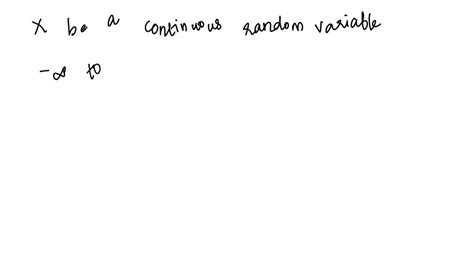 X be a continuous random variable
-∞ to